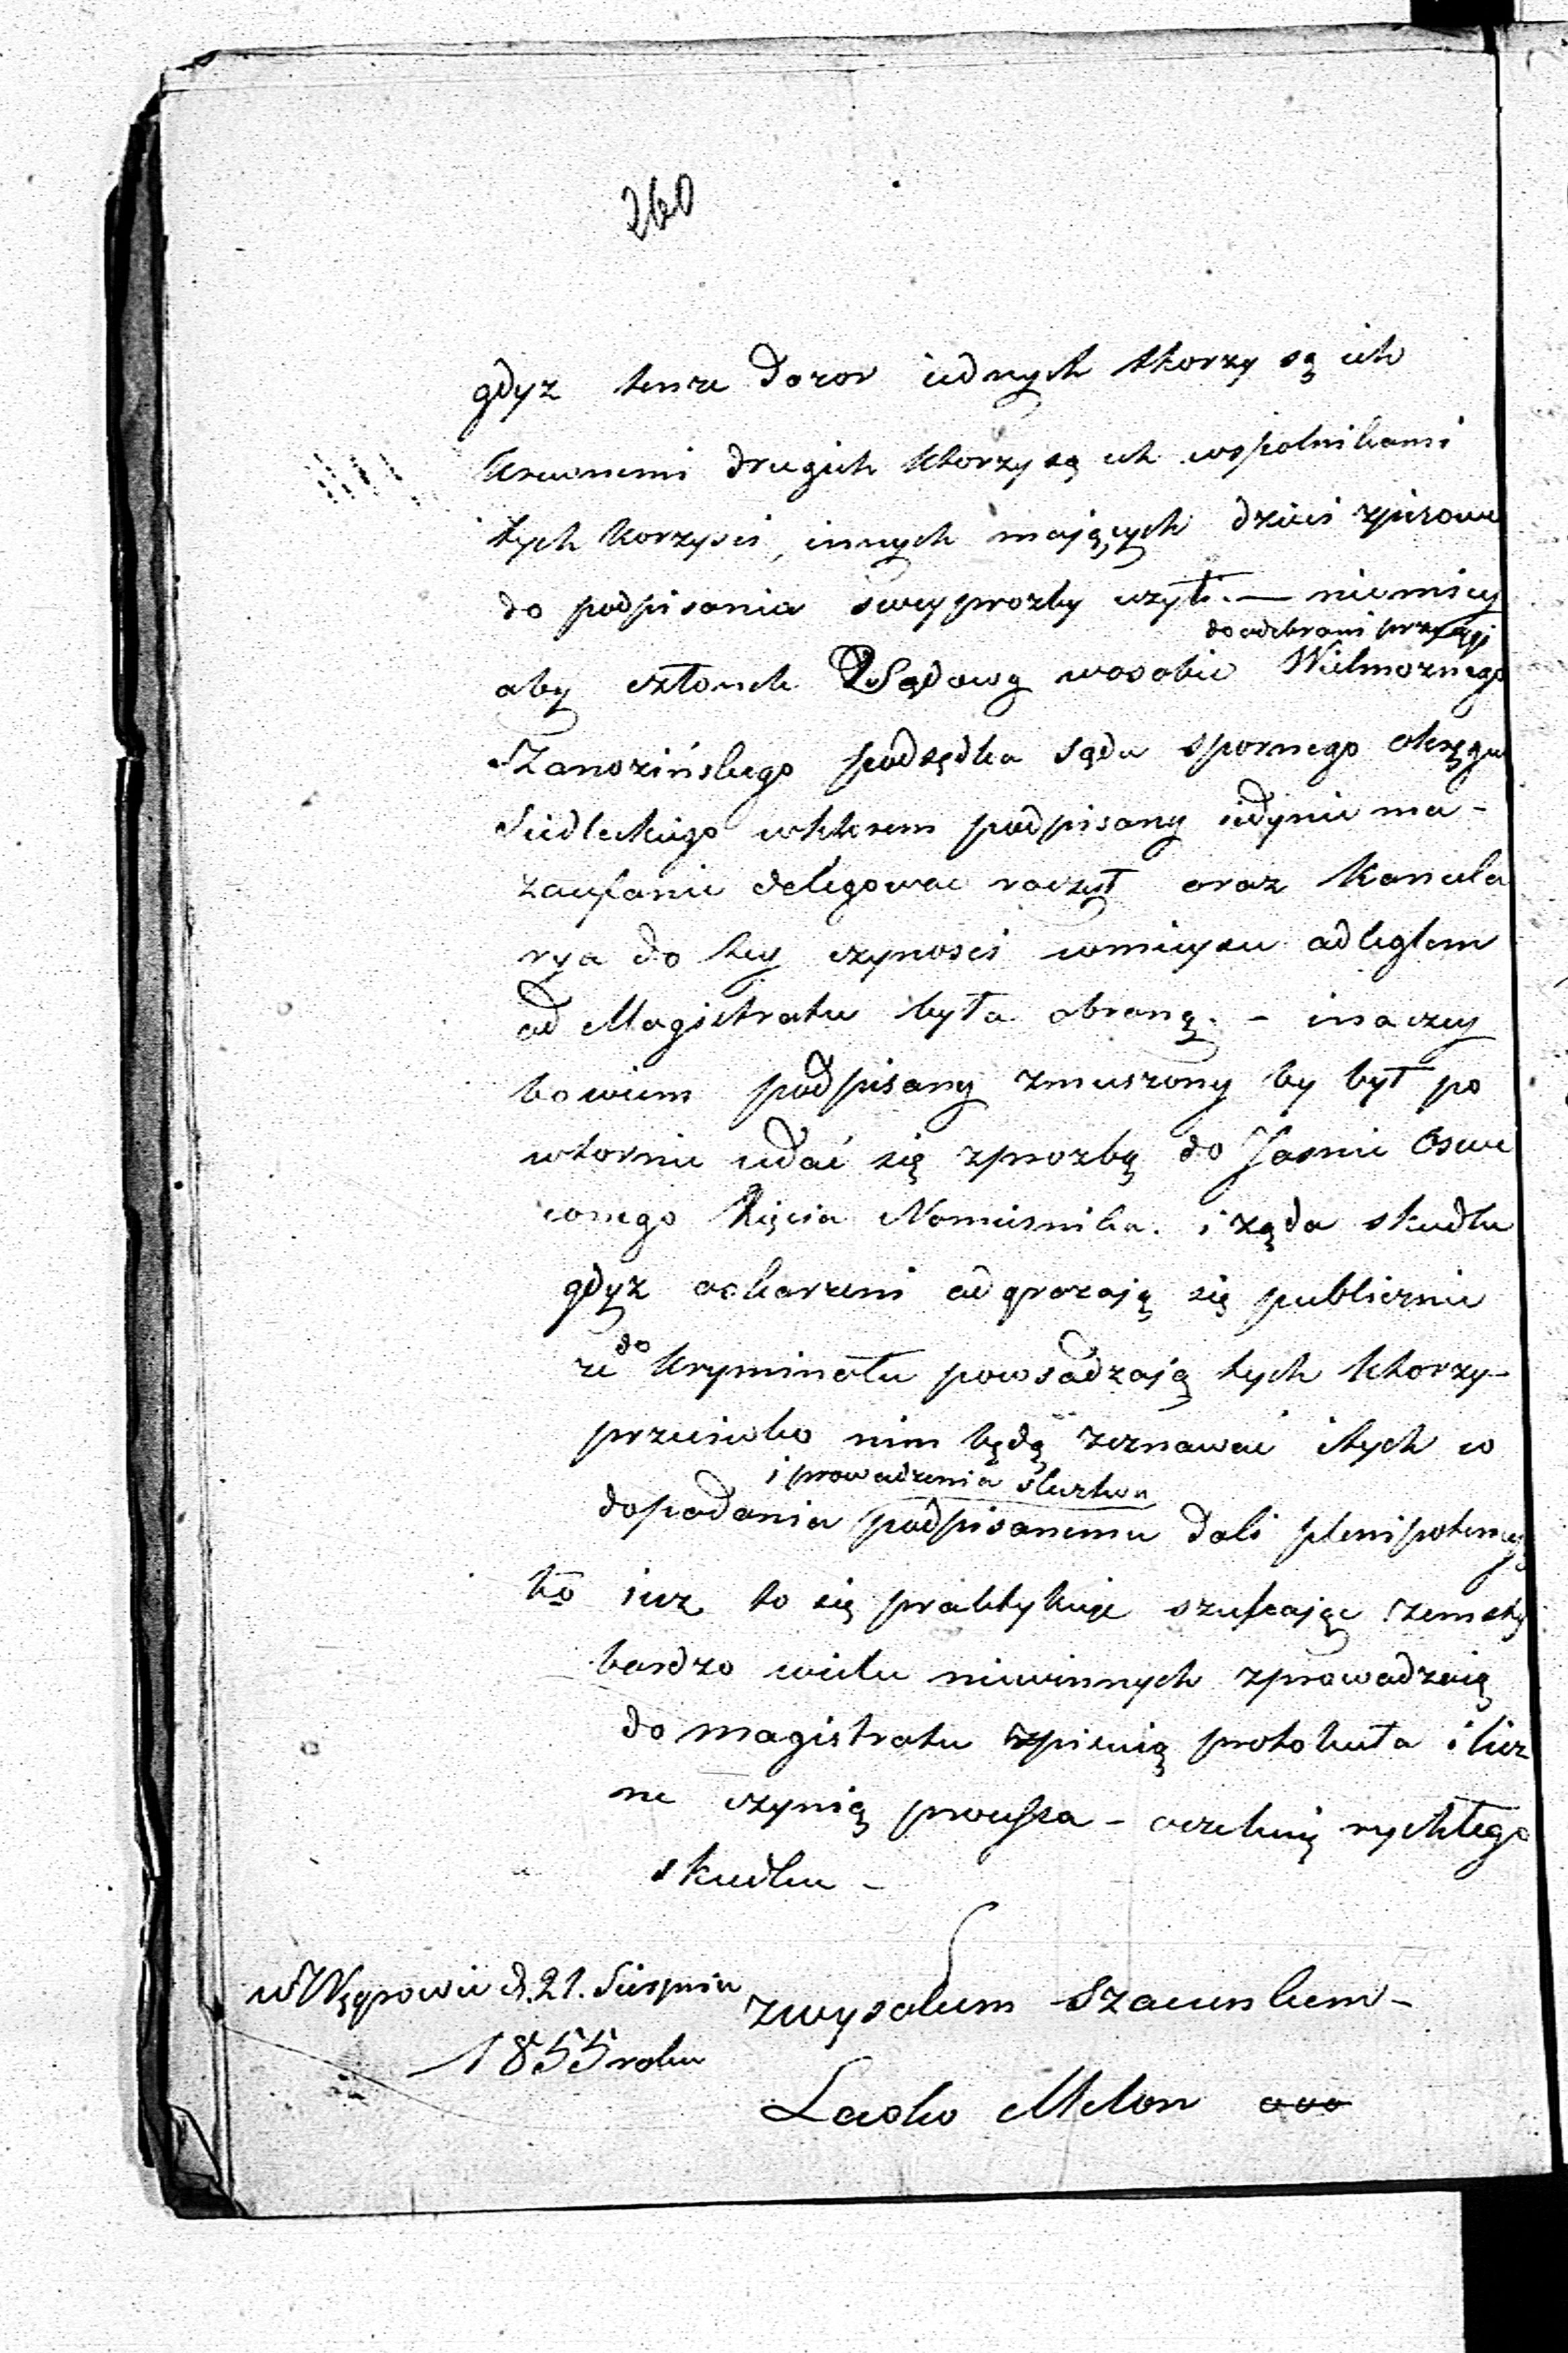 260
gdyz tenze Dozor iednych ktorzy są ich
krewnemi drugich ktorzy są ich wspolnikami
tych korzysci, innych maiących dzieci spisowe
do podpisania swey prozby uzył. — niemniey
do odebrani przysięgi
aby członek Sądowy wosobie Wielmoznego
podsędka Sądu spornego okręgu
Siedleckiego wktorem podpisany iedynie ma-
zaufanie delegowac raczył oraz Kancela
rya do tey czynosci wmieyscu odległem
od Magistratu była obraną. - inaczey
bowiem podpisany zmuszony by był po
wtornie udać się zprozbą do Jasnie Oswie
conego Xięcia Namiesnika. i ząda skudku
gdyz oskarzeni odgrazają się publicznie
ze do kryminału powsadzają tych ktorzy-
przeciwko nim będą zeznawać i tych co
i prowadzenia sleztwa
dopodania podpisanemu dali plenipotencyą
ko iuz to się praktykuje szukając zemsty
bardzo wielu niewinnych zprowadzaią
do magistratu spisuią protokuła i licz
ne czynią processa - oczekuię rychłego
skudku -
w Węgrowie d. 21. Sierpnia
1855 roku
zwysokiem szacunkiem-
Lasko Melon ooo